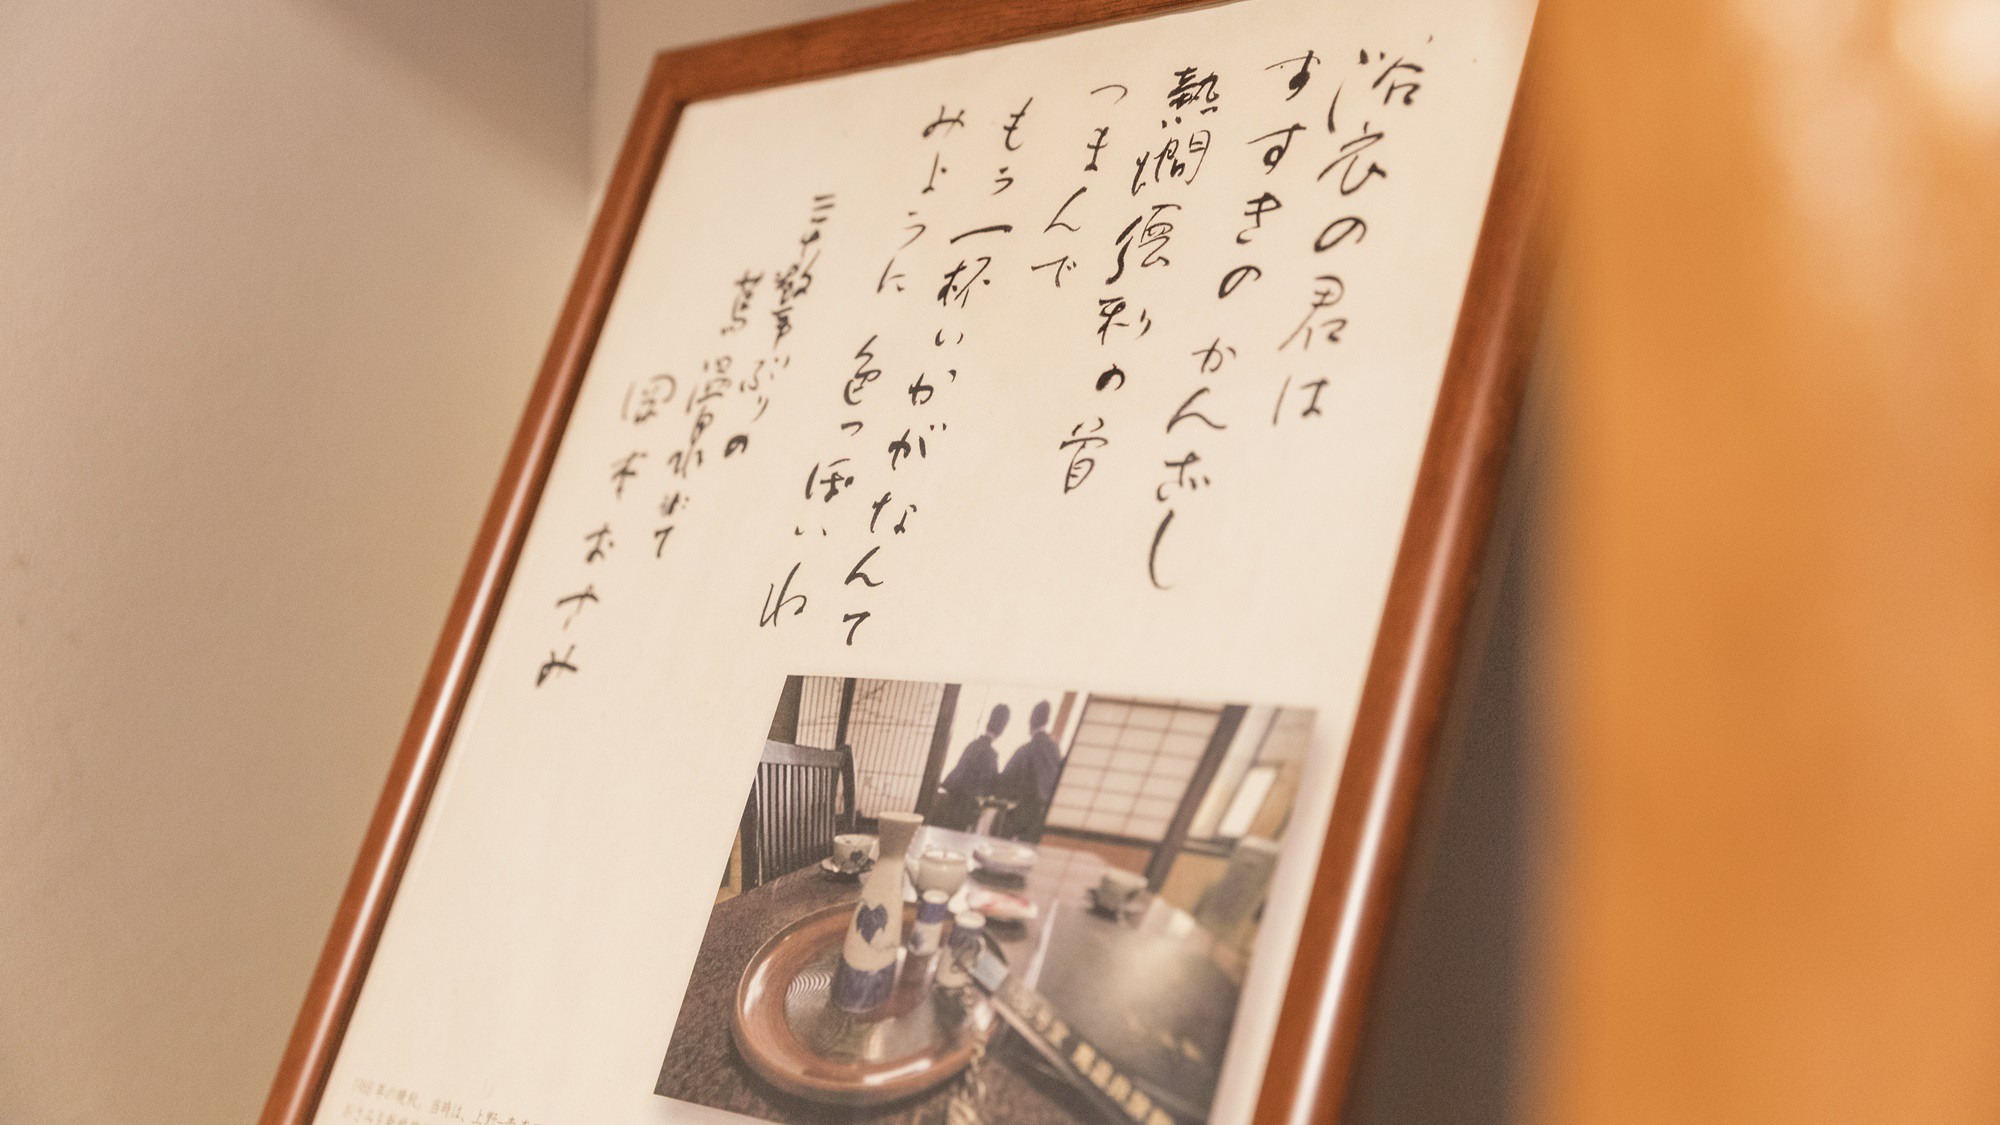 浴衣の君は
すすきのかんざし
熱燗徳利の首
つまんで
もう一杯いかがなんて
みように 色っぽいね
三十数年ぶりの
蔦温泉にて
岡本おさみ
年の晩秋、当時は、上野